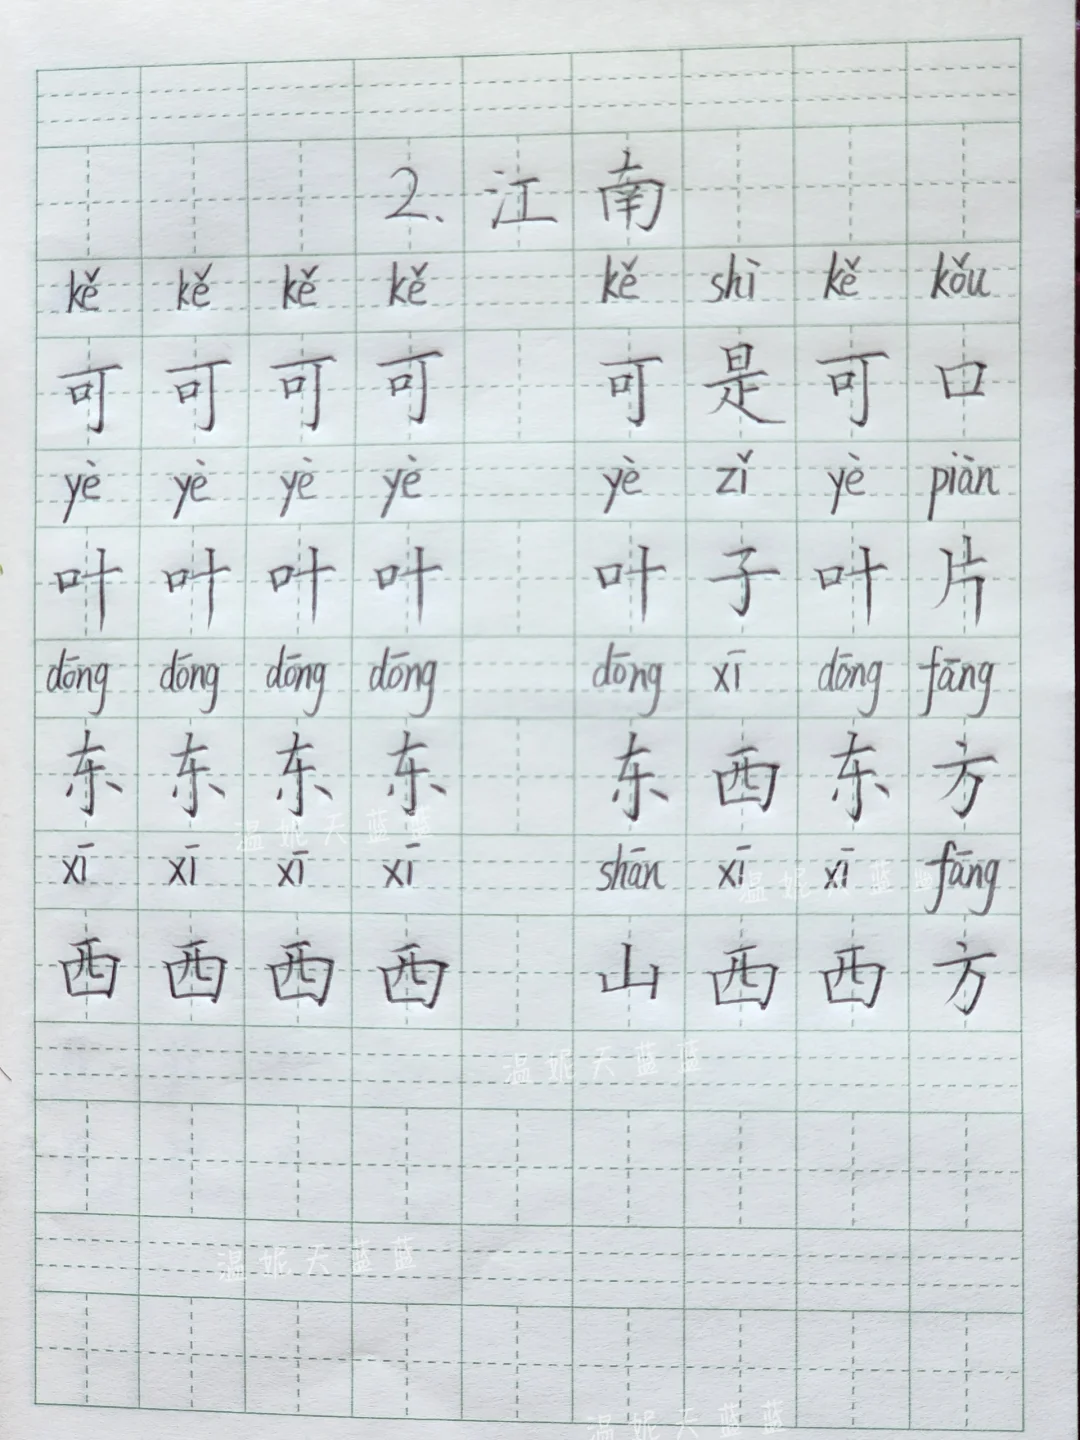 2、江南
kě kě kě kě kě shì kě kǒu
可可可可 可是可口
yè yè yè yè yè zǐ yè piàn
叶叶叶叶 叶子叶片
dōng dōng dōng dōng dōng xī dōng fāng
东东东东 东西东方
温妮天蓝蓝
xī xī xī xī shān xī xī fāng
温妮天蓝蓝
西西西西 山西西方
温妮天蓝蓝
温妮天蓝蓝
温妮天蓝蓝